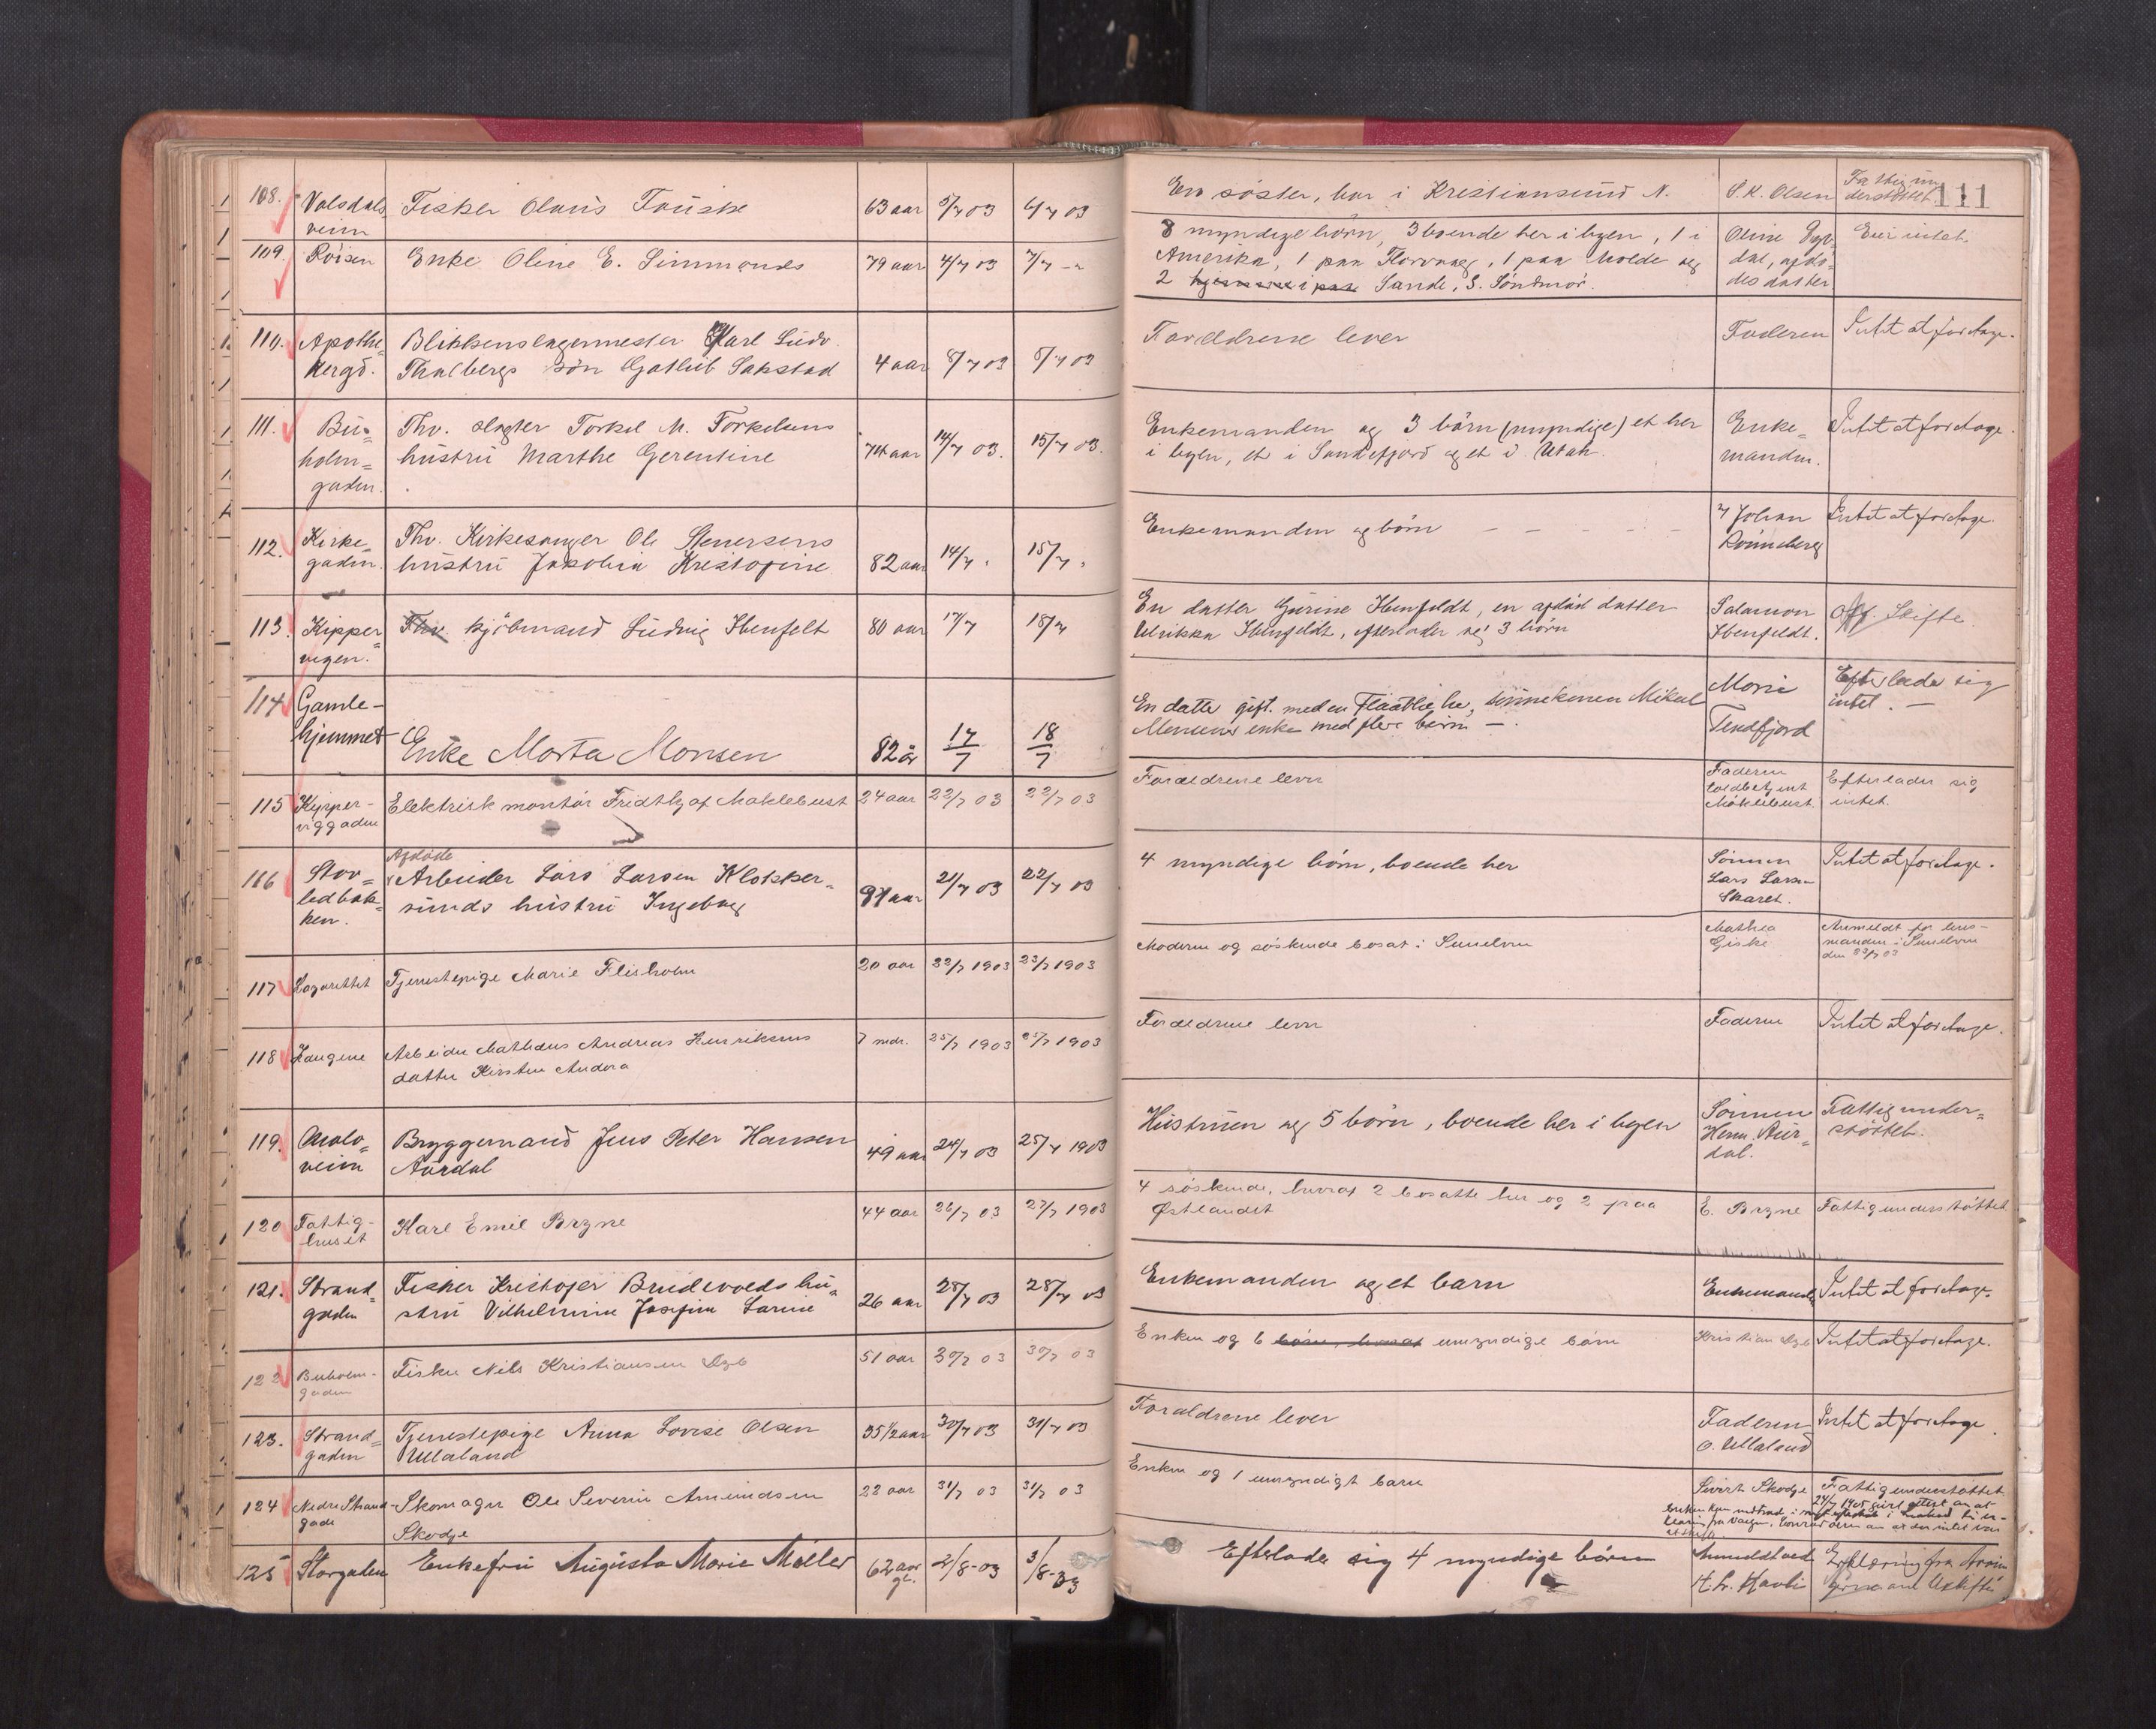 111
108. Valsdals Fisker Olaus Fauske 63 aar 5/7 03 6/7 03 En søster, bor i Kristiansund N. S. K. Olsen Fattigun
veien derstøttet
109. Røisen Enke Oline E. Simmonds 79 aar 4/7 03 7/7 8 myndige børn, 3 boende her i byen, 1 i Oline Eier intet.
Amerika, 1 paa 1 paa Molde og dal, afdø-
2 i Sande, S. Søndmør. des datter
110. Apothe- Blikkenslagermester Karl Ludv. Forældrene lever Faderen Intet at foretage.
kergd. Thalbergs søn Gotlieb Sakstad 4 aar 8/7 03 8/7 03
111. Bu- Thv. slagter Torkel M. Torkelsens Enkemanden og 3 børn (myndige) et her Enke- Intet at foretage.
holm- hustru Marthe Gerentine 74 aar 14/7 03. 15/7 03. i byen, et i Sandefjord og et i Utah. manden.
gaden.
112. Kirke- Thv. Kirkesanger Ole Stenersens Enkemanden og børn Johan Intet at foretage.
gaden. hustru Jakobia Kristofine 82 aar 14/7 15/7 Rønneberg
113. Kipper- Thv. kjøbmand Ludvig Ibenfelt 80 aar 17/7 18/7 En datter Gurine Ibenfeldt, en afdød datter Salamon Off. Skifte
vigen. Ulrikka Ibenfeldt, efterlader sig 3 børn Ibenfeldt.
114 Gamle- En datter gift. med en her, sønnekonen Mikal Marie Efterlader sig
hjemmet Enke Marta Monsen 82 år 17/7 18/7 Monsens enke med flere børn — Tendfjord intet. —
115 Kipper- Elektrisk montør Fridthjof Maklebust 24 aar 22/7 03 22/7 03 Forældrene lever Faderen Efterlader sig
viggaden Møklebust intet.
116 Stor- Afdøde
ledbak- Arbeider Lars Larsen Klokker- 21/7 03 22/7 03 4 myndige børn, boende her Sønnen Intet at foretage.
ken. sunds hustru Ingeborg Lars Larsen
Skaret.
117 Lazarettet Tjenestepige Marie Flisholm 20 aar 22/7 1903 23/7 1903 Moderen og søskende bosat i Sunelven Mathea Anmeldt for lens-
Giske manden i Sunelven
den 23/7 03
118 Haugene Arbeider Mathæus Andreas Henriksens 7 mdr. 25/7 1903 25/7 1903 Forældrene lever Faderen Intet at foretage.
datter Kirsten Andora
119. Molo- Bryggemand Jens Peter Hansen 49 aar 24/7 03 25/7 1903 Hustruen og 5 børn, boende her i byen Sønnen Fattigunder-
veien Aurdal Henr. Aur- støttet.
dal.
120 Fattig- Karl Emil Bryne 44 aar 26/7 03 27/7 1903 4 søskende, hvoraf 2 bosatte her og 2 paa E. Bryne Fattigunderstøttet
huset Østlandet
121. Strand- Fisker Kristofer Breidevolds hu- Enkemanden og et barn Enkemanden Intet at foretage.
gaden stru Vilhelmine Josefine Larine 26 aar 28/7 03 28/7 03
122 Buholm- Fisker Nils Kristiansen Dyb 51 aar 30/7 03 30/7 03 Enken og 6 børn, bosat umyndige børn Kristian Dyb Intet at foretage.
gaden
123. Strand- Tjenestepige Anna Lovise Olsen 35 1/2 aar 30/7 03 31/7 03 Forældrene lever Faderen Intet at foretage.
gaden Ullaland O. Ullaland
124 Nedre Strand- Skomager Ole Severin Amundsen 22 aar 31/7 03 31/7 03 Enken og 1 umyndigt barn Sivert Skodje Fattigunderstøttet
gade Skodje
125 Storgaden Enkefru Augusta Marie Møller 62 aar 2/8-03 3/8-03 Efterlader sig 4 myndige børn Anmeldt ved Erklæring fra
gl. H. L. Kavli